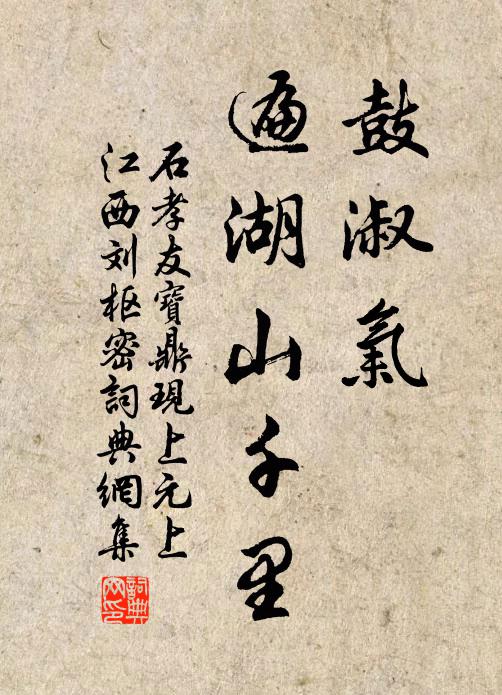 鼓淑氣
遍湖山千里
石孝友寶鼎現上元上
江西刘枢密詞典網集
詞典
网印